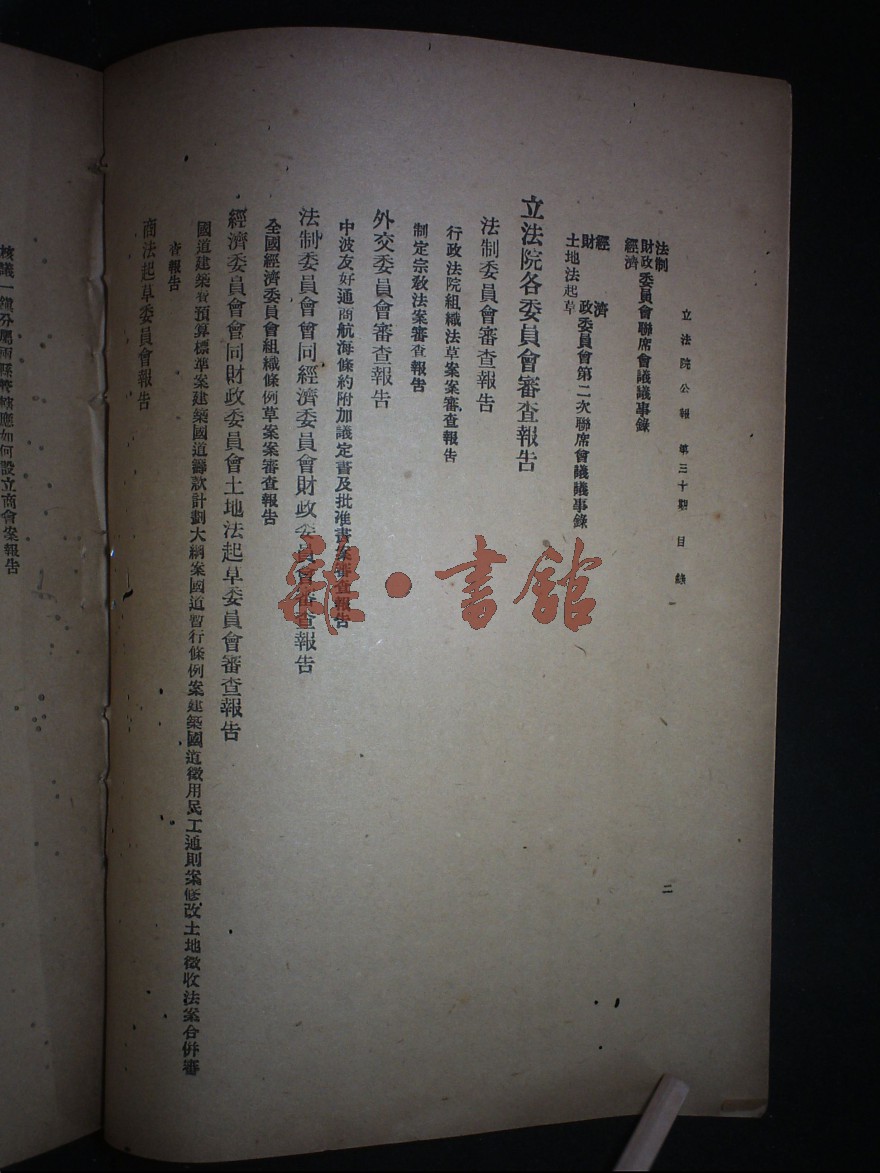 立法院公報 第三十期 目錄
二
法制
財政委員會聯席會議議事錄
經濟
經濟
財政委員會第二次聯席會議議事錄
土地法起草
立法院各委員會審查報告
法制委員會審查報告
行政法院組織法草案案審查報告
制定宗教法案審查報告
外交委員會審查報告
中波友好通商航海條約附加議定書及批准書案審查報告
法制委員會會同經濟委員會財政委員會審查報告
全國經濟委員會組織條例草案案審查報告
經濟委員會會同財政委員會土地法起草委員會審查報告
國道建築費預算標準案建築國道籌款計劃大綱案國道暫行條例案建築國道徵用民工通則案修改土地徵收法案合併審
查報告
商法起草委員會報告
核議一鎮分屬兩縣管轄應如何設立商會案報告
雜·書館